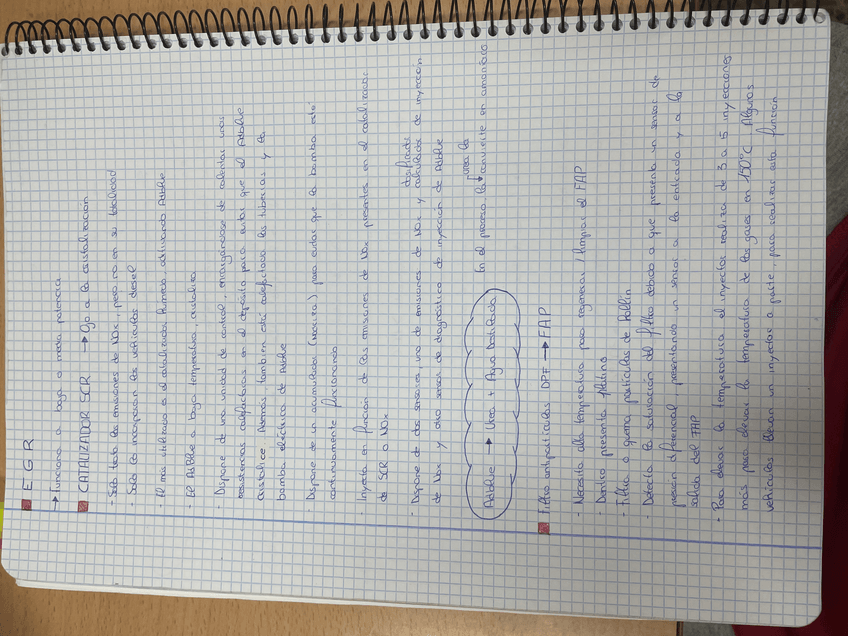 EGR
→ Funciona a baja o media potencia
CATALIZADOR SCR → Ojo a la cristalización
- Solo trata las emisiones de NOx, pero no en su totalidad
- Solo lo incorporan los vehículos diesel
- El más utilizado es el catalizador húmedo, utilizando Adblue
- El AdBlue a baja temperatura, cristaliza
- Dispone de una unidad de control, encargándose de calentar unas
resistencias calefactoras en el depósito para evitar que el Adblue
cristalice. Además también está calefactado las tuberías y la
bomba eléctrica de Adblue
Dispone de un acumulador para evitar que la bomba este
continuamente funcionando
Inyecta en función de las emisiones de Nox presentes en el catalizador
de SCR o NOx
dosificador
- Dispone de dos sensores, uno de emisiones de Nox y catalizador de inyección
de Nox y otro sensor de diagnóstico de inyección de Adblue
Adblue → Urea + Agua Destilada
En el proceso la urea se convierte en amoníaco
Filtro antipartículas DPF → FAP
- Necesita alta temperatura para regenerar / limpiar el FAP
- Dentro presenta platino
- Filtra o quema partículas de hollín
- Detecta la saturación del filtro debido a que presenta un sensor de
presión diferencial, presentando un sensor a la entrada y a la
salida del FAP
- Para elevar la temperatura el inyector realiza de 3 a 5 inyecciones
más para elevar la temperatura de los gases en 150°C. Algunos
vehículos llevan un inyector a parte, para realizar esta función